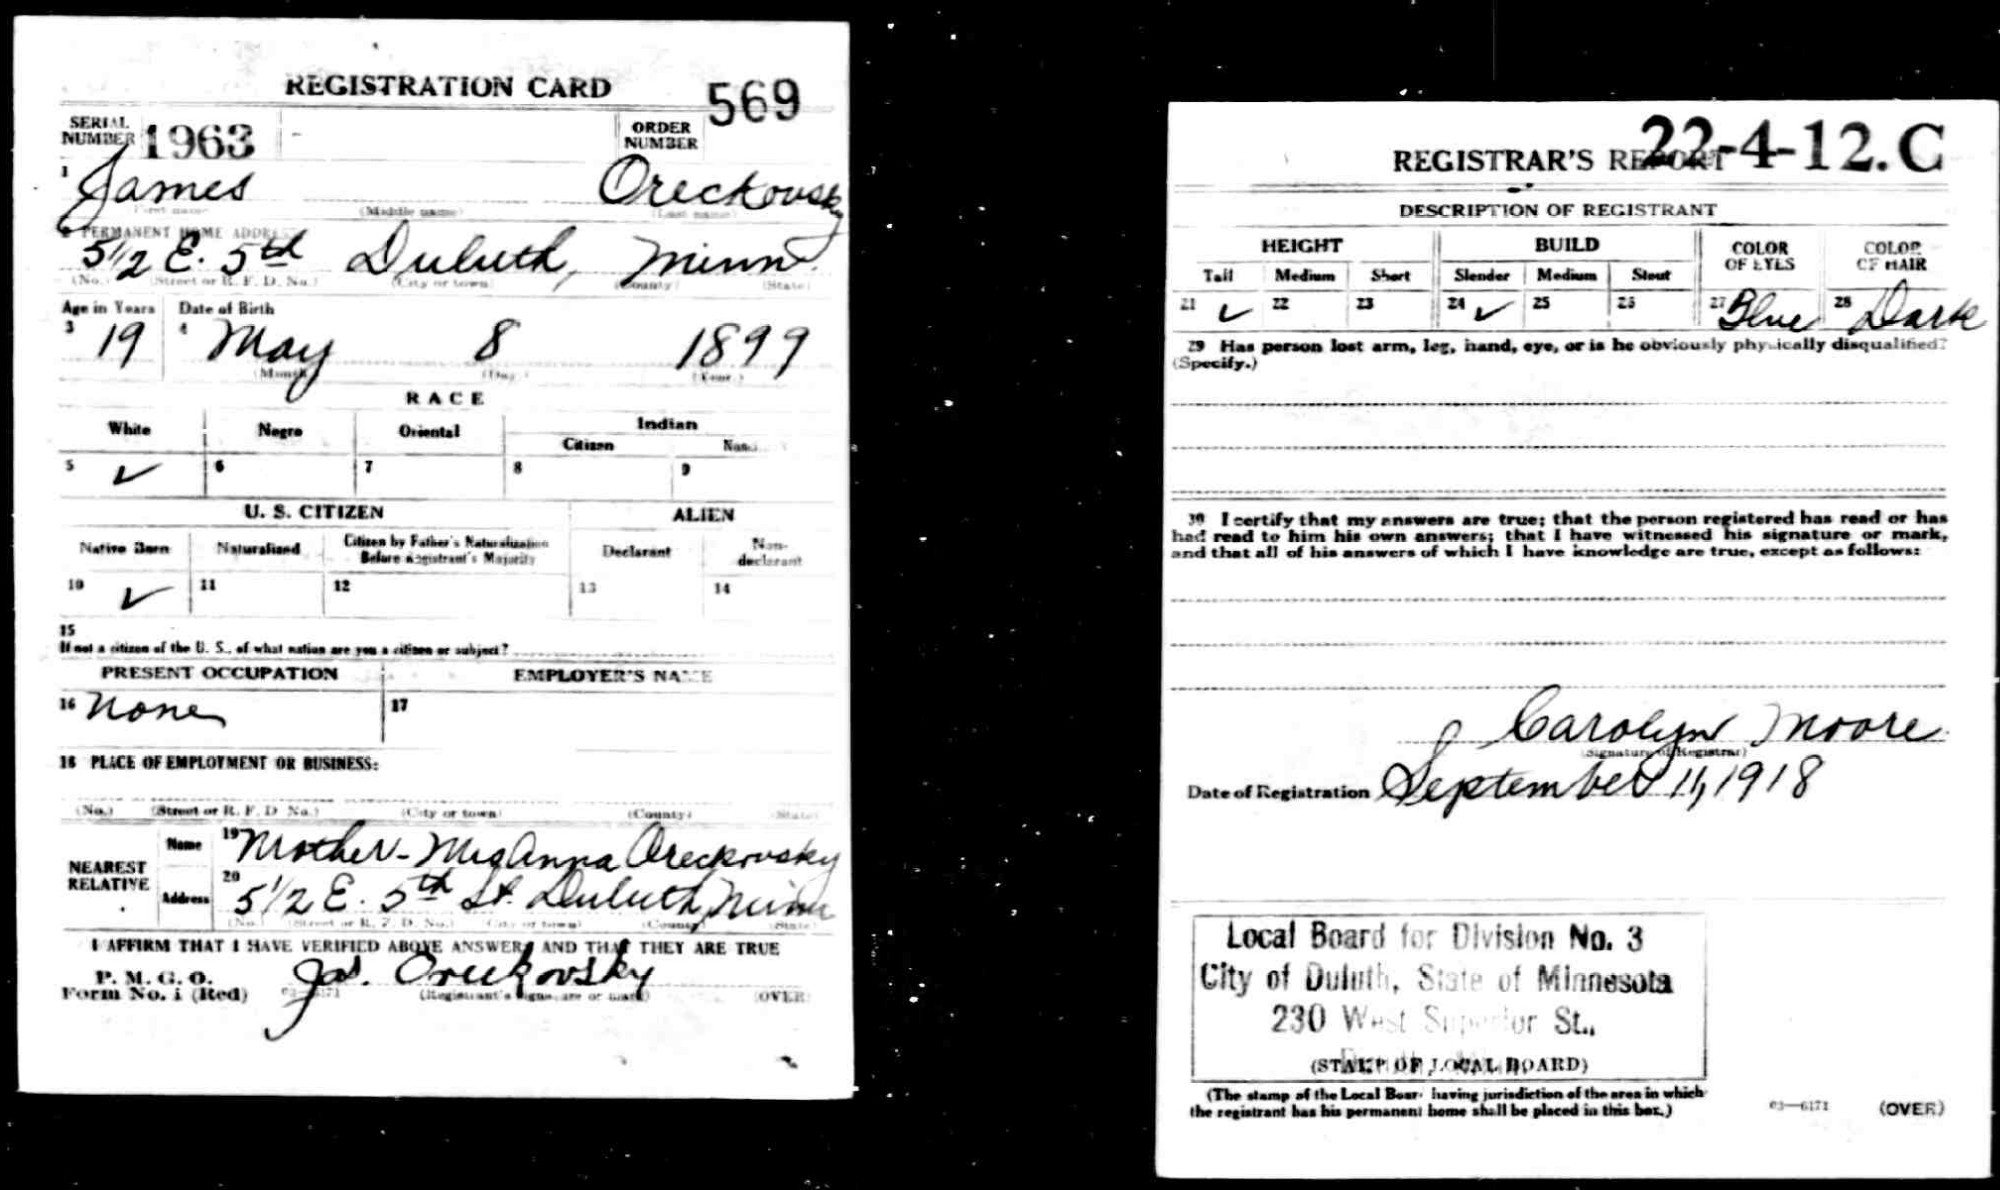 REGISTRATION CARD
569
SERIAL NUMBER 1963 - ORDER NUMBER
1 James Oreckovsky
(First name) (Middle name) (Last name)
2 PERMANENT HOME ADDRESS
5 1/2 E. 5th Duluth, Minn.
(No.) (Street or R. F. D. No.) (City or town) (County) (State)
Age in Years Date of Birth
3 19 4 May 8 1899
(Month) (Day) (Year)
RACE
White Negro Oriental Indian
Citizen
5 ✓ 6 7 8 9
U. S. CITIZEN ALIEN
Native Born Naturalized Citizen by Father's Naturalization Before Registrant's Majority Declarant Non-declarant
10 ✓ 11 12 13 14
15
If not a citizen of the U. S., of what nation are you a citizen or subject?
PRESENT OCCUPATION EMPLOYER'S NAME
16 None 17
18 PLACE OF EMPLOYMENT OR BUSINESS:
(No.) (Street or R. F. D. No.) (City or town) (County) (State)
NEAREST RELATIVE
Name 19 Mother - Mrs Anna Oreckovsky
Address 20 5 1/2 E. 5th St. Duluth, Minn
(No.) (Street or R. F. D. No.) (City or town) (County) (State)
I AFFIRM THAT I HAVE VERIFIED ABOVE ANSWERS AND THAT THEY ARE TRUE
P. M. G. O.
Form No. 1 (Red) 03—6171 Jas. Oreckovsky
(Registrant's signature or mark) (OVER)
REGISTRAR'S REPORT 22-4-12. C
DESCRIPTION OF REGISTRANT
HEIGHT BUILD COLOR OF EYES COLOR OF HAIR
Tall Medium Short Slender Medium Stout
21 ✓ 22 23 24 ✓ 25 26 27 Blue 28 Dark
29 Has person lost arm, leg, hand, eye, or is he obviously physically disqualified?
(Specify.)
30 I certify that my answers are true; that the person registered has read or has
had read to him his own answers; that I have witnessed his signature or mark,
and that all of his answers of which I have knowledge are true, except as follows:
Carolyn Moore
(Signature of Registrar)
Date of Registration September 11, 1918
Local Board for Division No. 3
City of Duluth, State of Minnesota
230 West Superior St.,
(STAMP OF LOCAL BOARD)
(The stamp of the Local Board having jurisdiction of the area in which
the registrant has his permanent home shall be placed in this box.)
03—6171 (OVER)